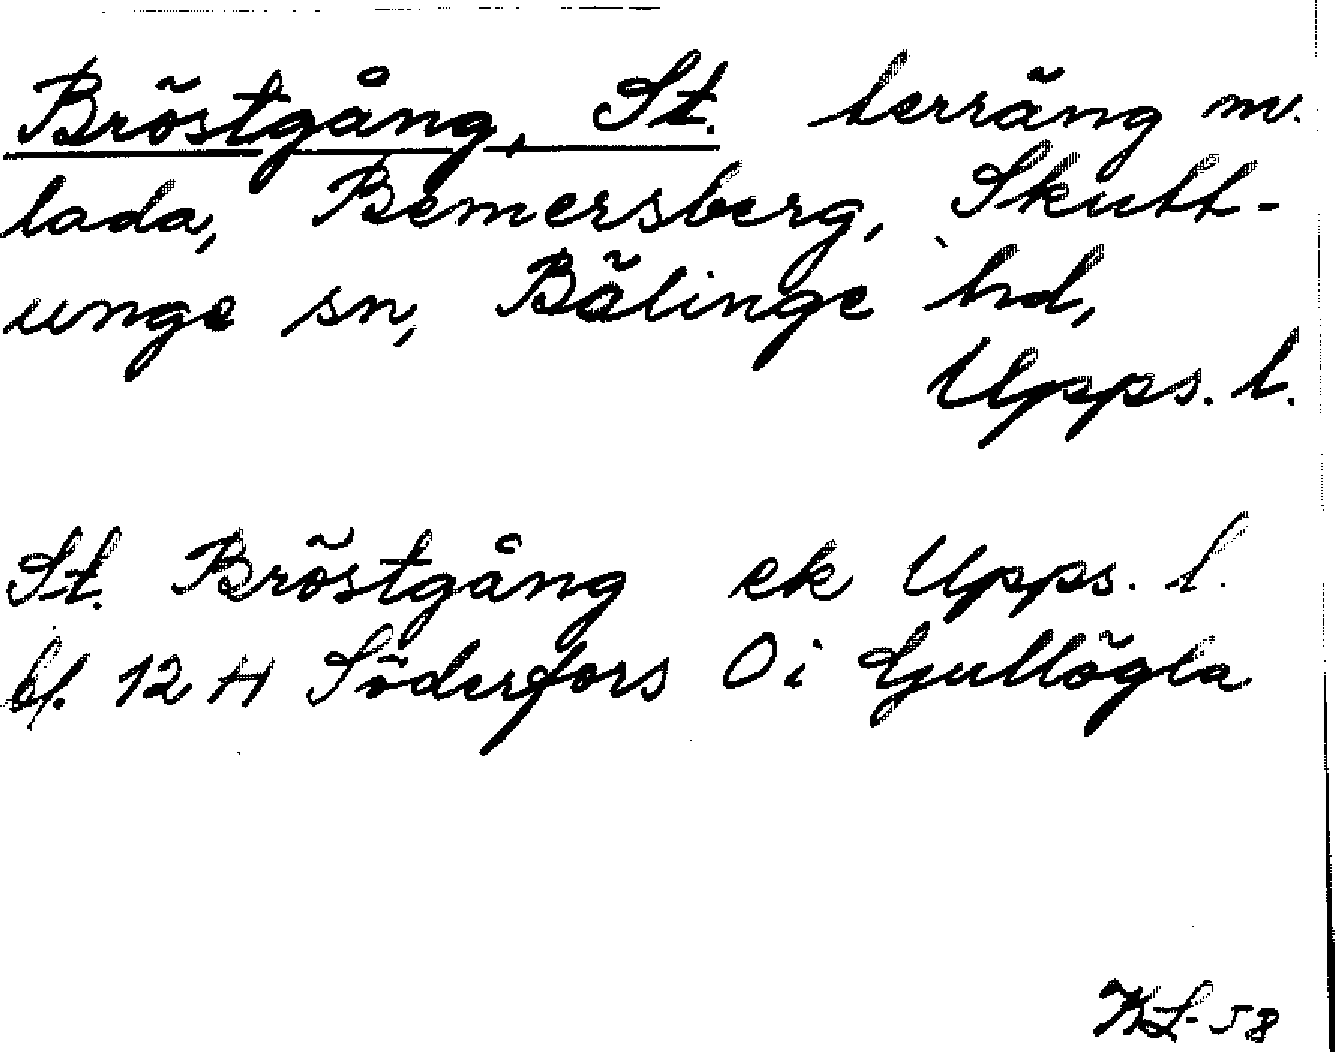 Bröstgång, St. terräng m.
lada, Bemersberg, Skutt-
unge sn, Bälinge hd,
Upps. l.
St. Bröstgång ek Upps. l.
bl. 12 H Söderfors O i Gullögla
KL-58